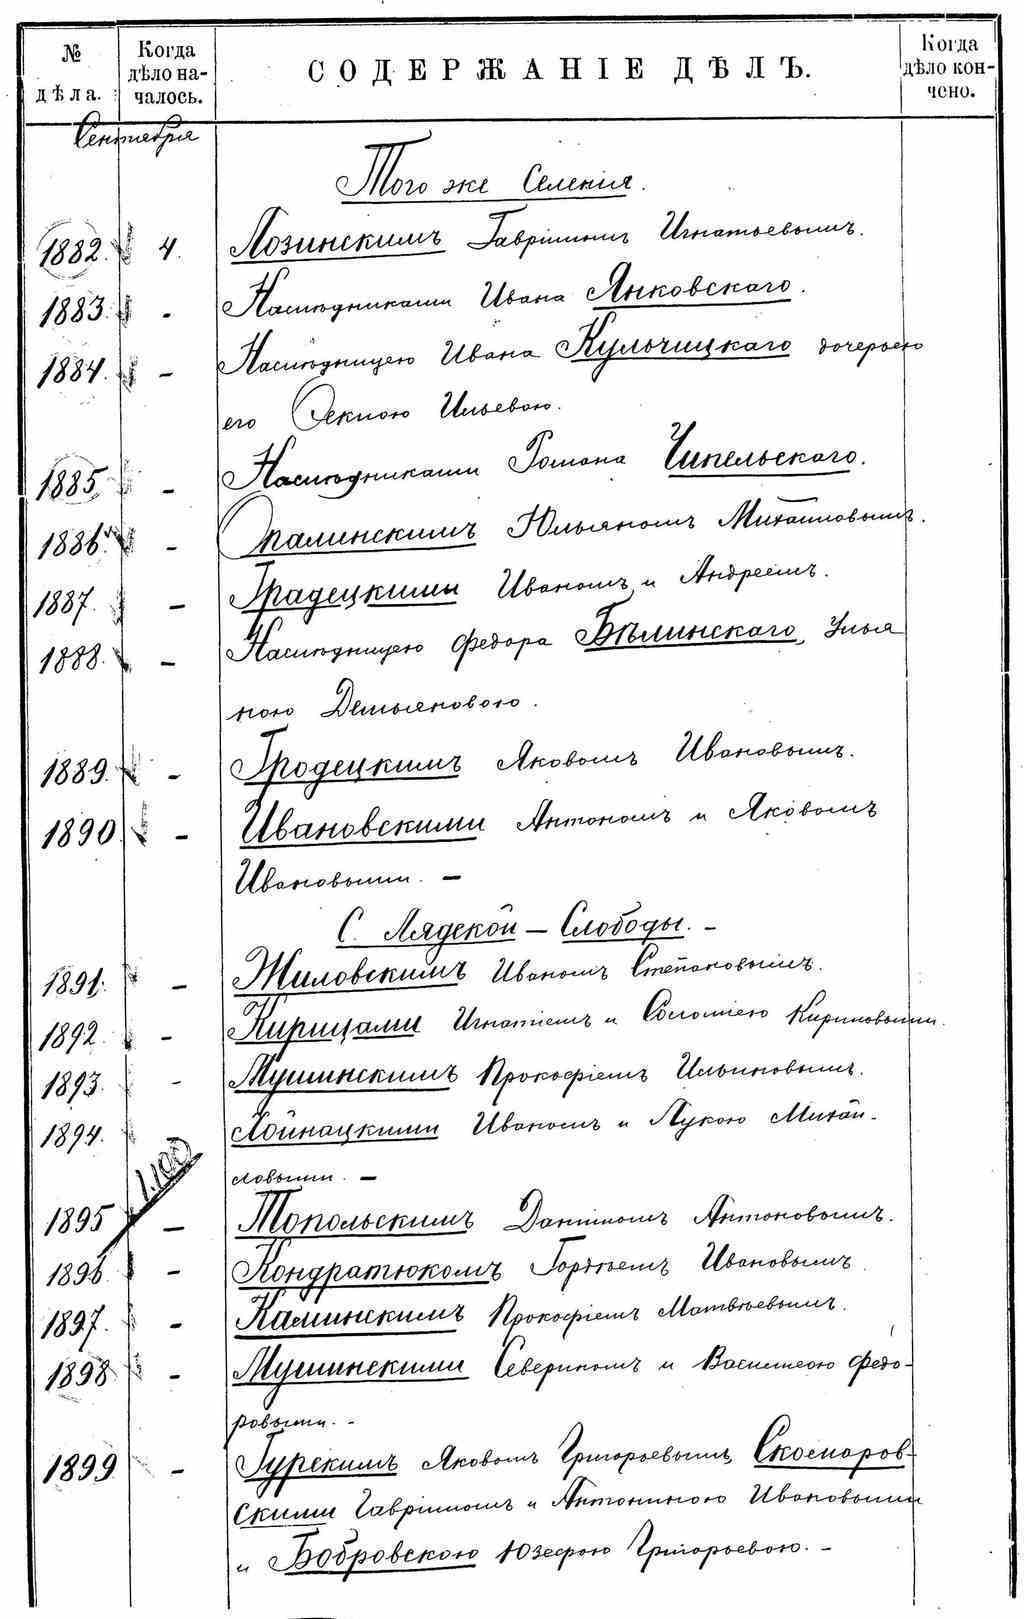 № дѣла. Когда дѣло началось. СОДЕРЖАНІЕ ДѢЛЪ. Когда дѣло кончено.
Сентября
Того же Селенія.
1882. 4. Лозинскимъ Гавріиломъ Игнатьевымъ.
1883. - Наслѣдниками Ивана Янковскаго.
1884. - Наслѣдницею Ивана Кульчицкаго дочерью
его Феклою Ильевою.
1885. - Наслѣдниками Романа Чипельскаго.
1886. - Опалинскимъ Юльяномъ Михайловымъ.
1887. - Градецкими Иваномъ и Андреемъ.
1888. - Наслѣдницею Федора Бѣлинскаго, Улья
ною Демьяновою.
1889. - Гродецкимъ Яковомъ Ивановымъ.
1890. - Ивановскими Антономъ и Яковомъ
Ивановыми. -
С. Лядской - Слободы. -
1891. - Жиловскимъ Иваномъ Степановымъ.
1892. - Кирицами Игнатіемъ и Соломіею Кириловыми.
1893. - Мушинскимъ Прокофіемъ Ильиновымъ.
1894. Лойнацкими Иваномъ и Лукою Михай-
ловыми. -
1895 - Топольскимъ Даніиломъ Антоновымъ.
1896 - Кондратюкомъ Гордѣемъ Ивановымъ
1897. - Калинскимъ Прокофіемъ Матвѣевымъ.
1898 - Мушинскими Севериномъ и Василісою Федо-
ровыми. -
1899 - Гурскимъ Яковомъ Григорьевымъ, Скомаров-
скими Гавріиломъ и Антониною Ивановыми
и Бобровскою Юзефою Григорьевою. -